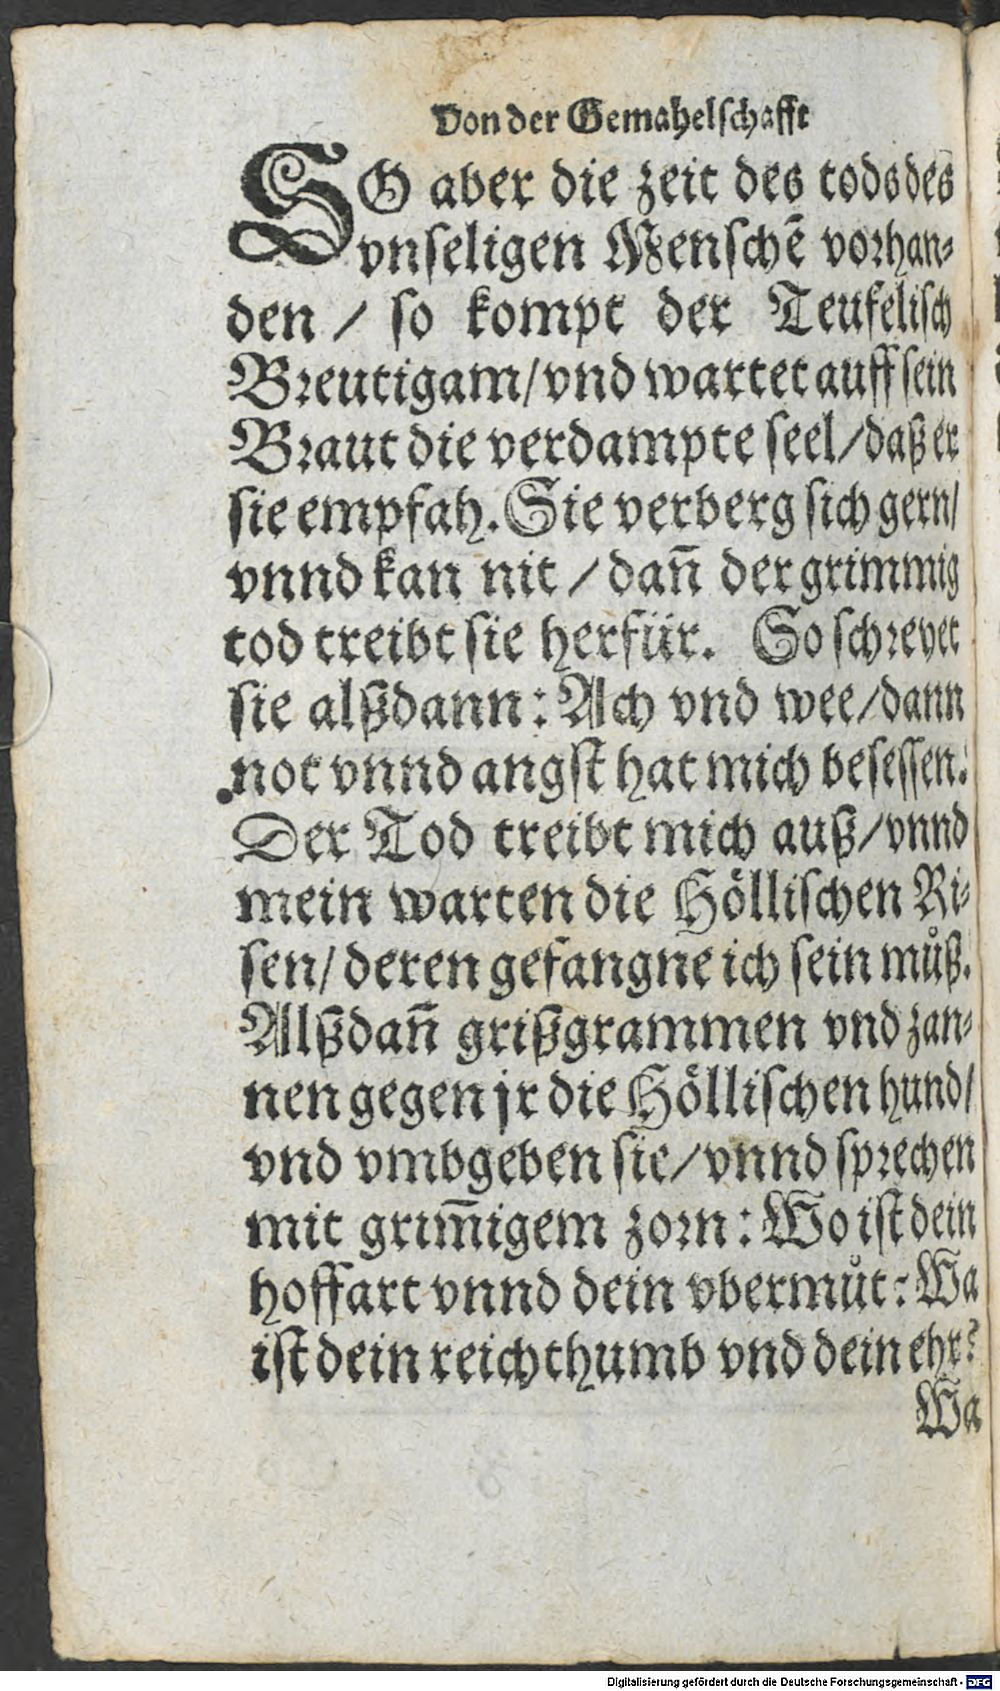 Von der Gemahelschafft
SO aber die zeit des tods des
vnseligen Menschē vorhan-
den / so kompt der Teufelisch
Breutigam/vnd wartet auff sein
Braut die verdampte seel/daß er
sie empfah. Sie verberg sich gern/
vnnd kan nit / dañ der grimmig
tod treibt sie herfür. So schreyet
sie alßdann: Ach vnd wee/dann
not vnnd angst hat mich besessen.
Der Tod treibt mich auß/vnnd
mein warten die Höllischen Ri-
sen/ deren gefangne ich sein můß.
Alßdañ grißgrammen vnd zan-
nen gegen jr die Höllischen hund/
vnd vmbgeben sie/vnnd sprechen
mit grim̄igem zorn: Wo ist dein
hoffart vnnd dein vbermůt: Wa
ist dein reichthumb vnd dein ehr?
Wa
Digitalisierung gefördert durch die Deutsche Forschungsgemeinschaft - DFG